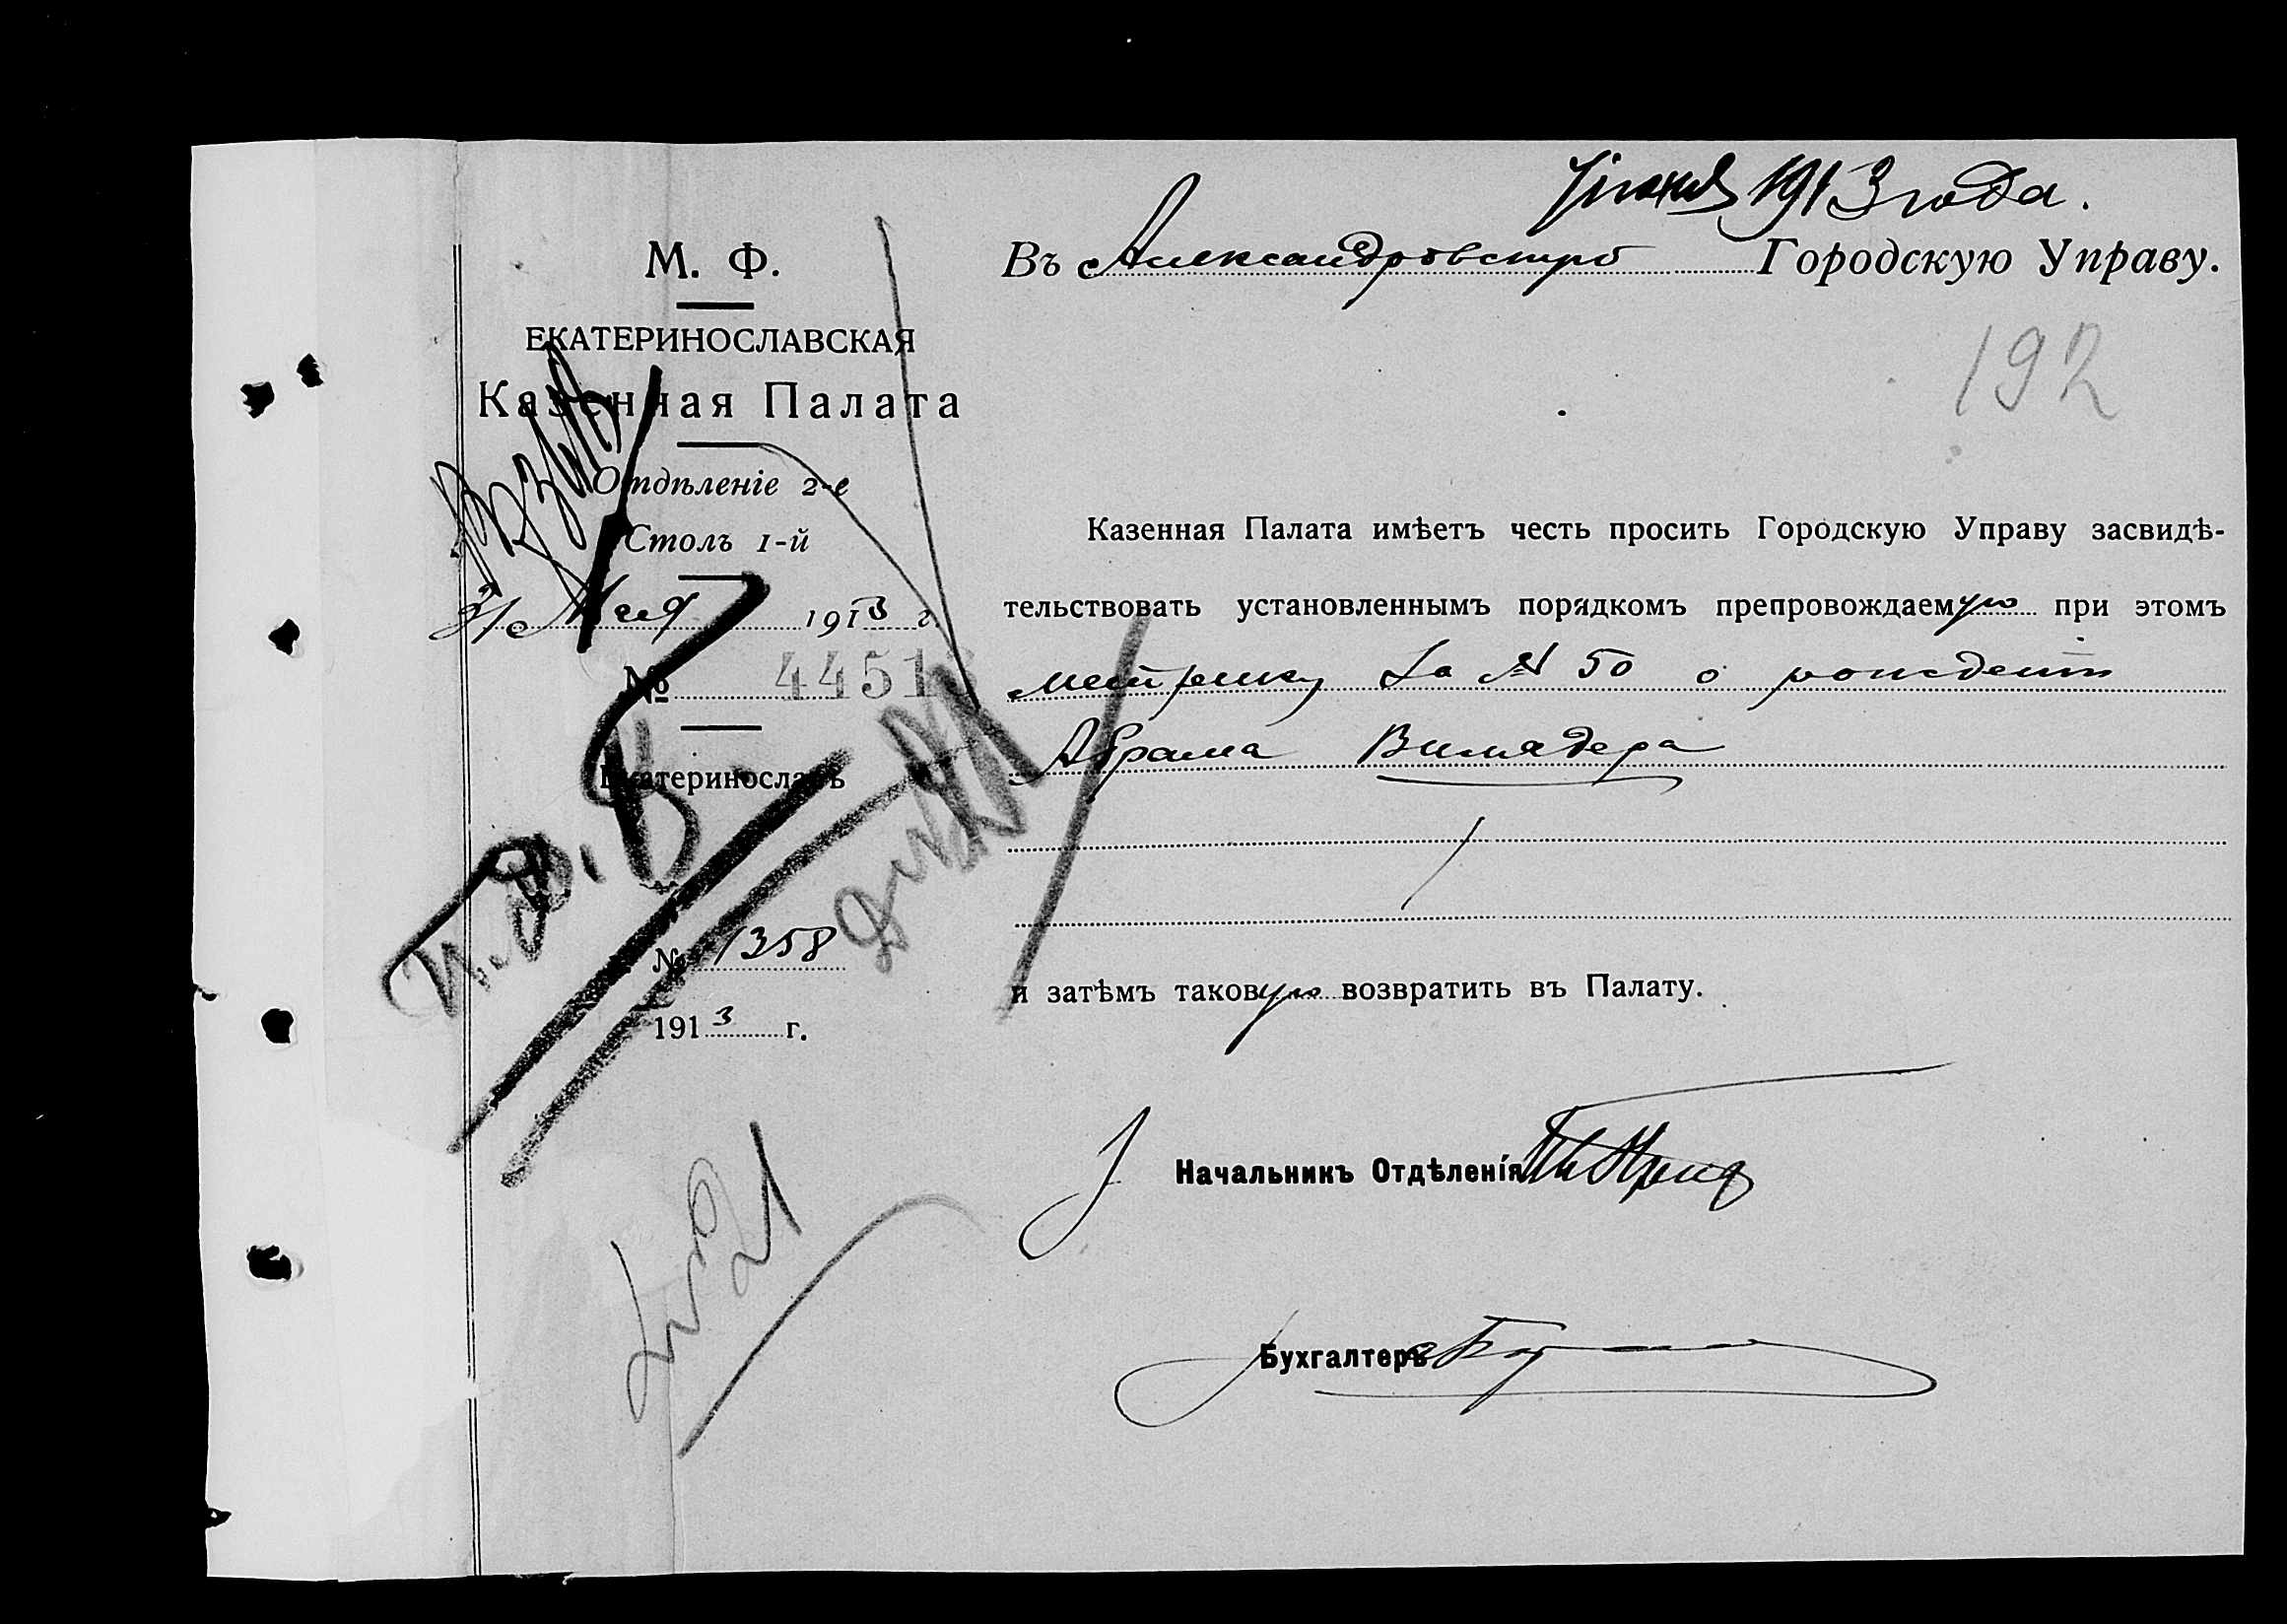 7 іюня 1913 года.
М. Ф.
ЕКАТЕРИНОСЛАВСКАЯ
Казенная Палата
Отдѣленіе 2-е
Столъ 1-й
31 Мая 1913 г.
№ 44513
Екатеринославъ
№ 1358
1913 г.
Въ Александровскую Городскую Управу.
192
Казенная Палата имѣетъ честь просить Городскую Управу засвидѣ-
тельствовать установленнымъ порядкомъ препровождаемую при этомъ
метрику за № 50 о рожденіи
Абрама
и затѣмъ таковую возвратить въ Палату.
Начальникъ Отдѣленія
Бухгалтеръ